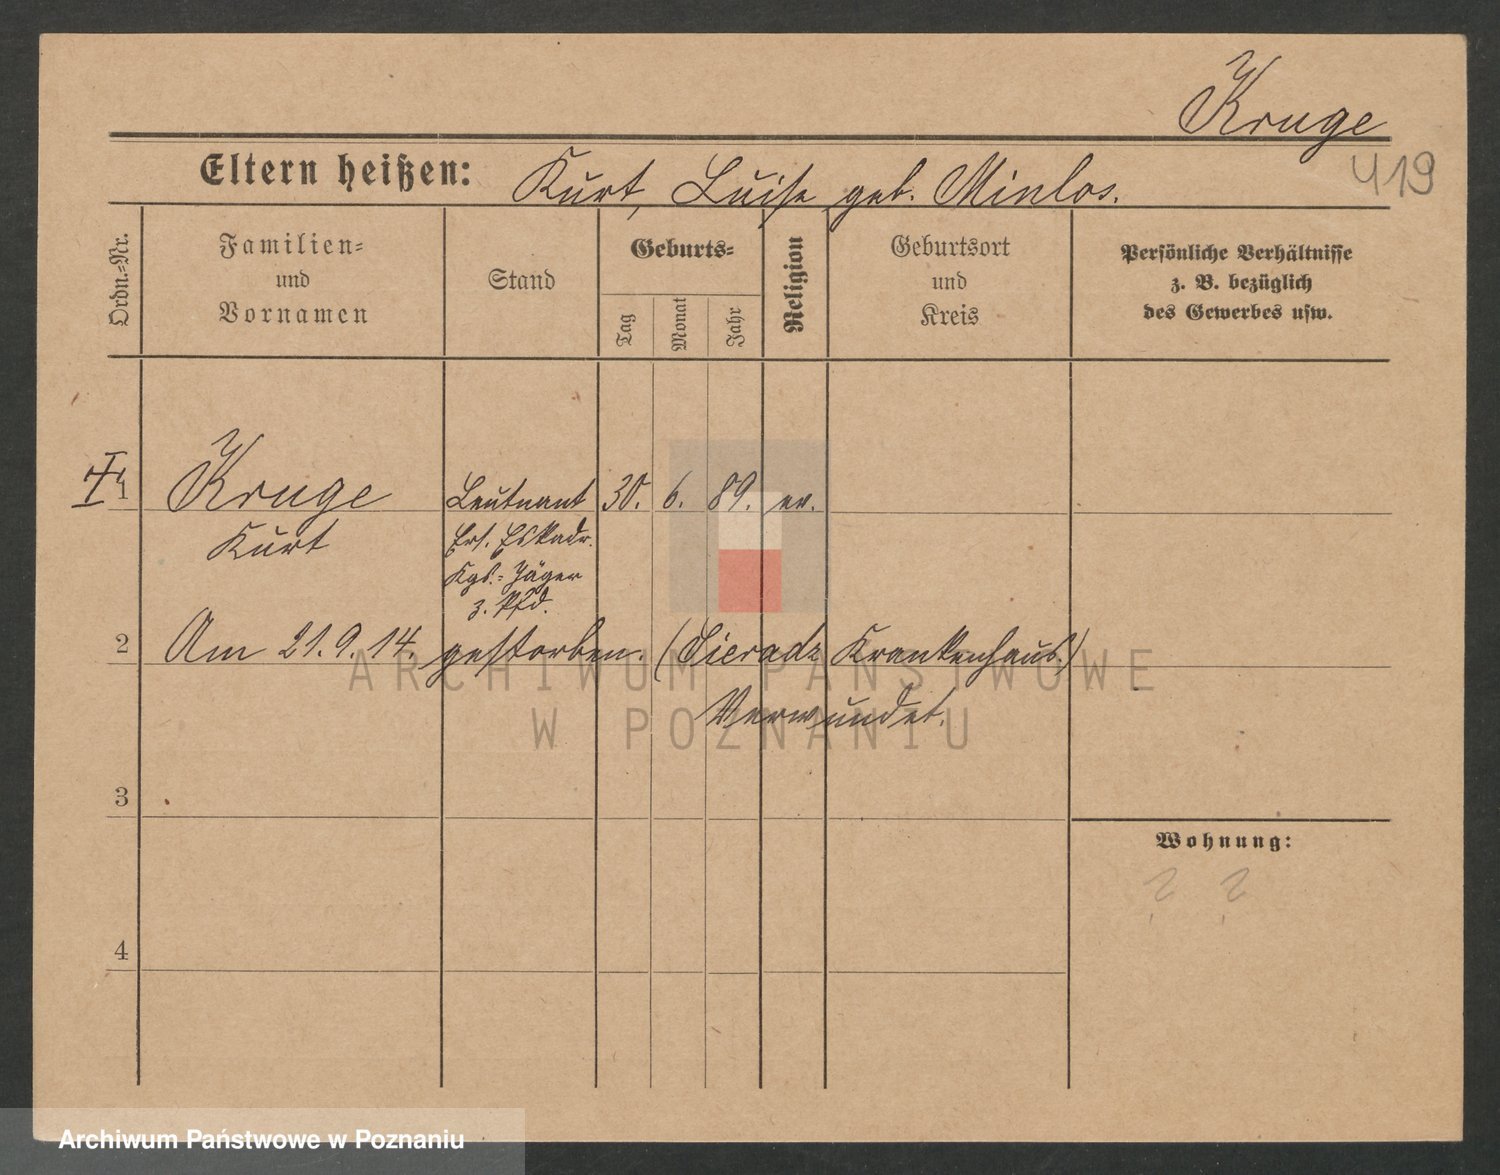 Kruge
419
Eltern heißen: Kurt, Luise geb. Minlos.
Ordn.-Nr.
Familien-
und
Vornamen
Stand
Geburts-
Tag
Monat
Jahr
Religion
Geburtsort
und
Kreis
Persönliche Verhältnisse
z. B. bezüglich
des Gewerbes usw.
1 Kruge Leutnant 30. 6. 89. ev.
Kurt Ers. Eskadr.
Kgs.-Jäger
z. Pfd.
2 Am 21.9.14. gestorben. (Sieradz Krankenhaus.)
Verwundet.
ARCHIWUM PAŃSTWOWE
W POZNANIU
3
Wohnung:
? ?
4
Archiwum Państwowe w Poznaniu